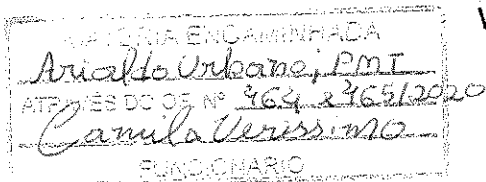 MATÉRIA ENCAMINHADA
Arialdo Urbano, PMI
ATRAVÉS DO OF. Nº 964 e 965/2020
Camila Verissimo
FUNCIONARIO